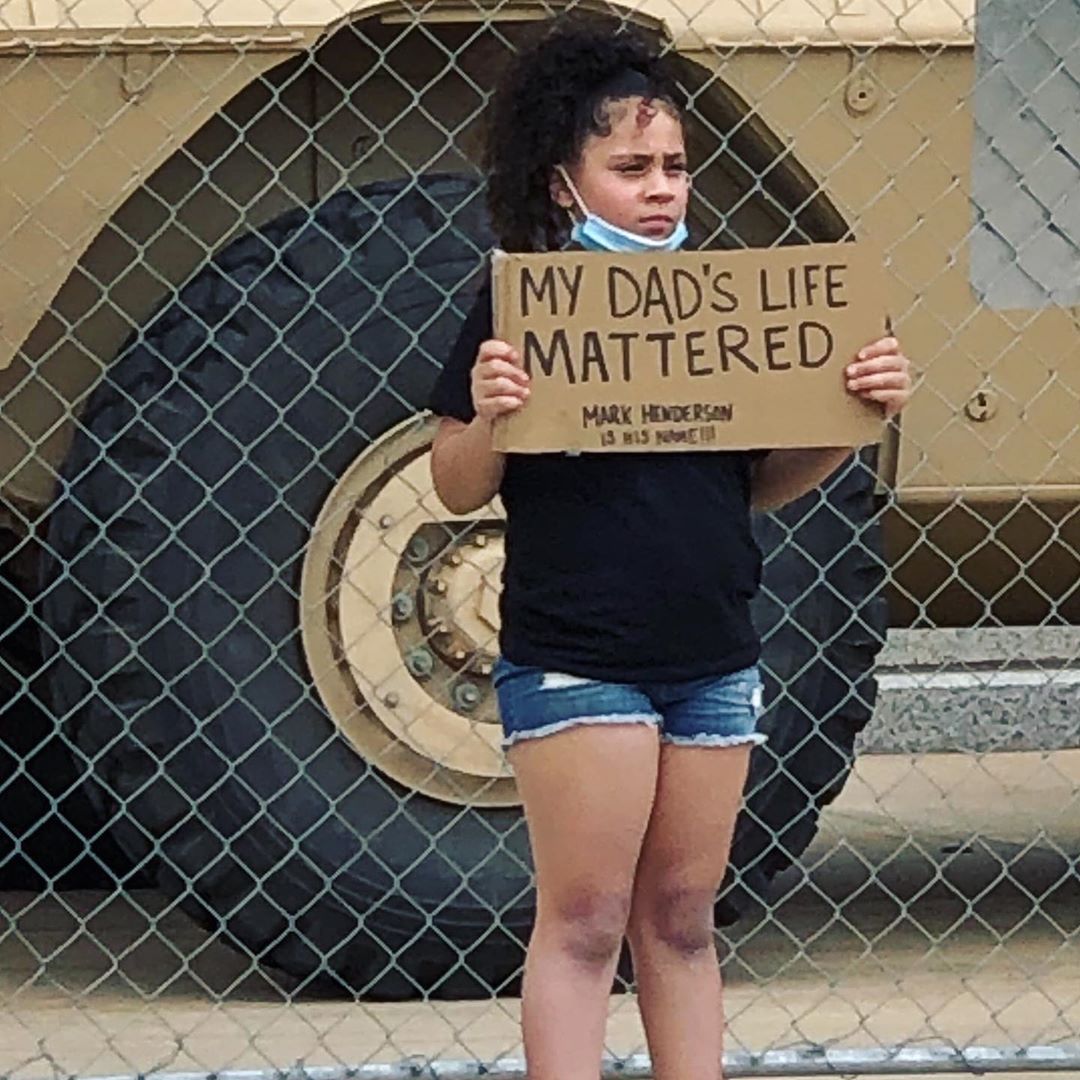 MY DAD'S LIFE
MATTERED
MARK HENDERSON
IS HIS NAME!!!